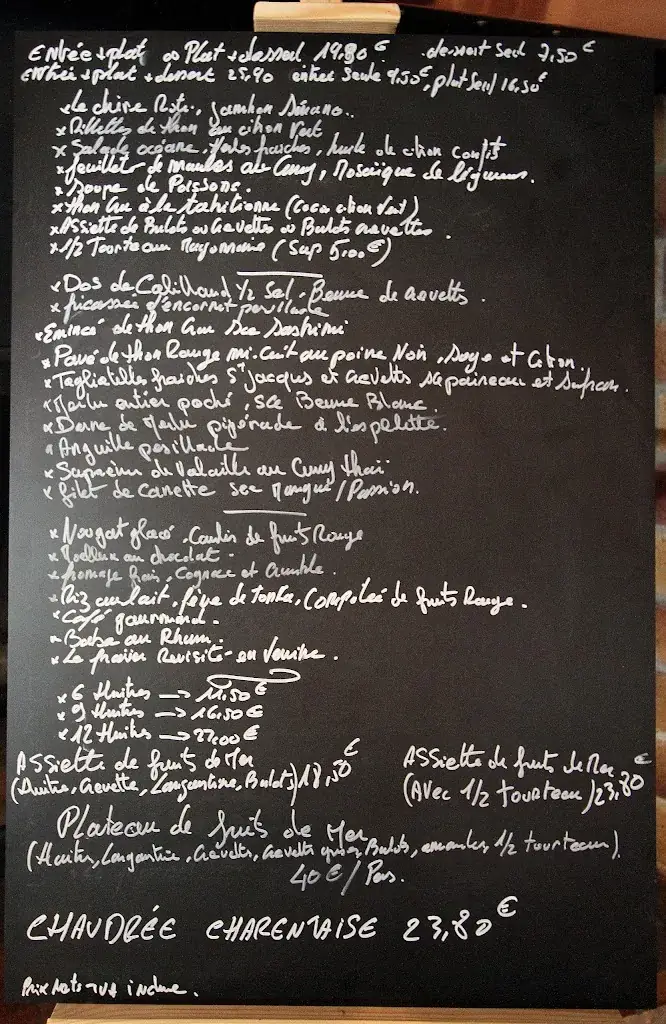 Entrée + plat ou Plat + dessert 19.80€ dessert seul 7,50€
Entrée + plat + dessert 25,90 entrée seule 9.50€, plat seul 16,50€
x Le chèvre Roti, jambon Sérano..
x Rillettes de thon au citron Vert
x Salade océane, Pâtes fraiches, huile de citron confit
x feuilleté de moules au Curry, Mosaïque de légumes.
x Soupe de Poissons.
x thon cru à la tahitienne (Coco citron Vert)
x Assiette de Bulots ou Crevettes ou Bulots crevettes
x 1/2 Tourteau Mayonnaise (Sup 5,00€)
x Dos de Cabillaud 1/2 Sel. Beurre de crevettes.
x fricassée d'encornet persillade
x Emincé de thon Cru sce Sashimi
x Pavé de thon Rouge mi-cuit au poivre Noir, soya et Citron.
x Tagliatelles fraiches St Jacques et crevettes sce poireau et Safran.
x Merlu entier poché, sce Beurre Blanc.
x Darne de Merlu pipérade à l'espelette.
x Anguille persillade
x Suprême de Volaille au Curry thaï
x filet de Canette sce Mangue/Passion.
x Nougat glacé. Coulis de fruits Rouge
x Moelleux au chocolat.
x fromage frais, Cognac et Crumble.
x Riz au lait, fève de Tonka, Compotée de fruits Rouge.
x Café gourmand.
x Baba au Rhum.
x Le fraisier Revisité en Verrine.
x 6 Huitres -> 11,50€
x 9 Huitres -> 16,50€
x 12 Huitres -> 22,00€
ASSiette de fruits de Mer
(Huitre, Crevette, Langoustine, Bulots) 18,50€
ASSiette de fruits de Mer
(Avec 1/2 tourteau) 23,80€
Plateau de fruits de Mer
(Huitres, Langoustine, Crevettes, Crevettes grises, Bulots, amandes, 1/2 tourteau).
40€/Pers.
CHAUDRÉE CHARENTAISE 23,80€
Prix Nets TVA incluse.